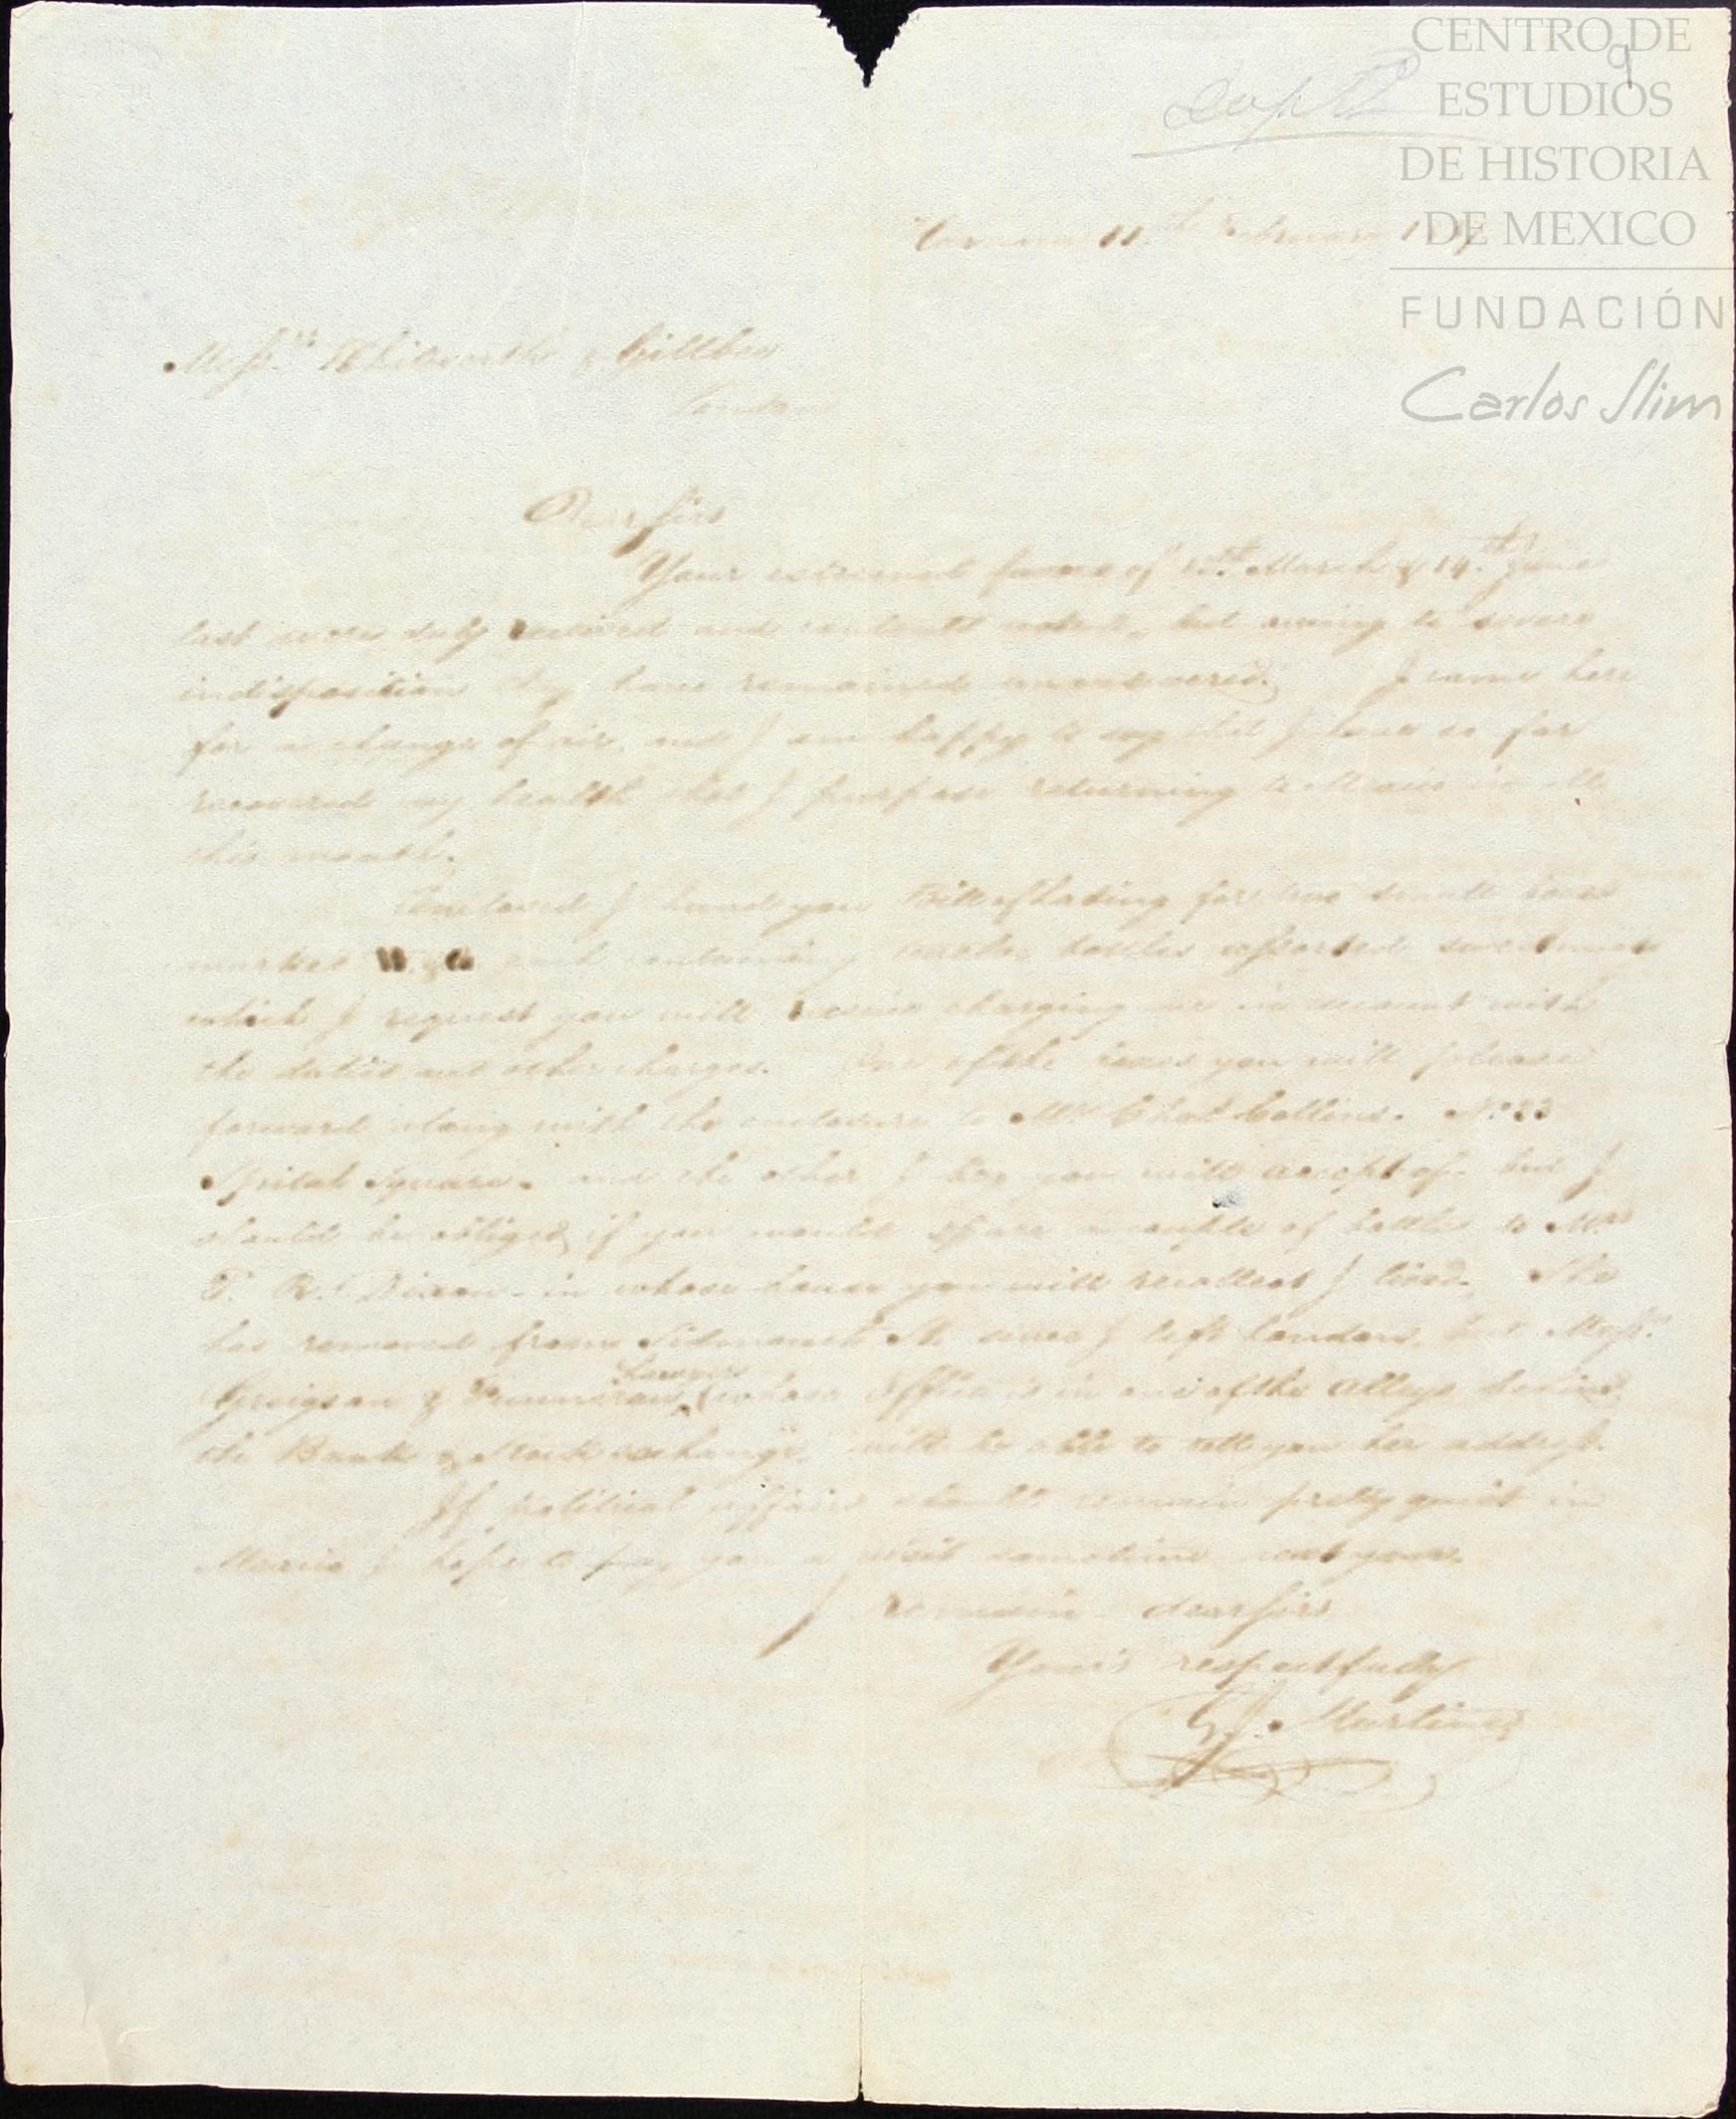 CENTRO DE
ESTUDIOS
DE HISTORIA
DE MEXICO
FUNDACIÓN
Carlos Slim
9
11th February
Messrs Whitworth & Gillbee
London
Dear Sirs
Your esteemed favors of March & 14th June
last were duly received and contents noted, but owing to severe
indisposition they have remained unanswered. I came here
for a change of air, and I am happy to say that I have so far
recovered my health that I purpose returning to Mexico in all
this month.
Enclosed I hand you Bill of Lading for two small boxes
marked W & G each containing bottles assorted sweetmeats
which I request you will receive charging me in account with
the duties and other charges. One of the boxes you will please
forward along with the enclosure to Mr Chas Collins. No 23
Spital Square. and the other I beg you will accept of. but I
should be obliged if you would spare a couple of bottles to Mrs
T. R. Dixon. in whose house you will recollect I lived. She
has removed from Sidmouth St. since I left London, but Messrs
Grigson & Lawyers (whose Office is in one of the alleys behind
the Bank & Stock exchange, will be able to tell you her address.
If political affairs should remain pretty quiet in
Mexico I hope to pay you a visit sometime next year.
I remain dear Sirs
Your's respectfully
G. J. Martinez